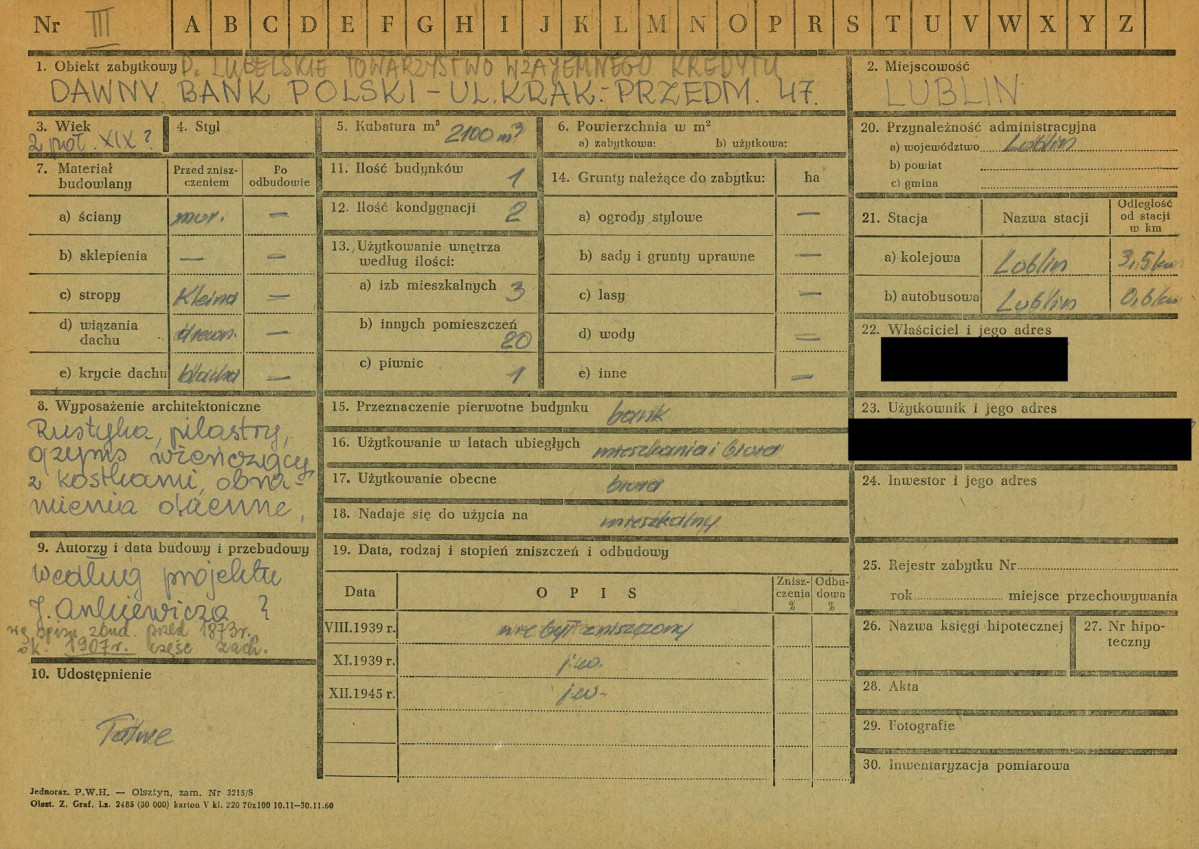 Nr III A B C D E F G H I J K L M N O P R S T U V W X Y Z
1. Obiekt zabytkowy P. LUBELSKIE TOWARZYSTWO WZAJEMNEGO KREDYTU
DAWNY BANK POLSKI – UL. KRAK.-PRZEDM. 47.
2. Miejscowość
LUBLIN
3. Wiek
2 poł. XIX ?
4. Styl
5. Kubatura m³ 2100 m³
6. Powierzchnia w m²
a) zabytkowa: b) użytkowa:
20. Przynależność administracyjna
a) województwo Lublin
b) powiat
c) gmina
7. Materiał budowlany
Przed znisz-
czeniem
Po
odbudowie
a) ściany mur. —
b) sklepienia — —
c) stropy Kleina —
d) wiązania
dachu drewn. —
e) krycie dachu blacha —
11. Ilość budynków 1
12. Ilość kondygnacji 2
13. Użytkowanie wnętrza
według ilości:
a) izb mieszkalnych 3
b) innych pomieszczeń
20
c) piwnic 1
14. Grunty należące do zabytku: ha
a) ogrody stylowe —
b) sady i grunty uprawne —
c) lasy —
d) wody —
e) inne —
21. Stacja Nazwa stacji
Odległość
od stacji
w km
a) kolejowa Lublin 3,5 km
b) autobusowa Lublin 0,6 km
22. Właściciel i jego adres
8. Wyposażenie architektoniczne
Rustyka, pilastry,
gzyms wieńczący
z kostkami, obra-
mienia okienne,
15. Przeznaczenie pierwotne budynku bank
16. Użytkowanie w latach ubiegłych mieszkania i biura
17. Użytkowanie obecne biura
18. Nadaje się do użycia na mieszkalny
23. Użytkownik i jego adres
24. Inwestor i jego adres
9. Autorzy i data budowy i przebudowy
według projektu
J. Ankiewicza ?
wg spisu zbud. przed 1873r.
ok. 1907r. część zach.
10. Udostępnienie
Łatwe
19. Data, rodzaj i stopień zniszczeń i odbudowy
Data OPIS
Znisz-
czenia
%
Odbu-
dowa
%
VIII.1939 r. nie był zniszczony
XI.1939 r. j.w.
XII.1945 r. j.w.
25. Rejestr zabytku Nr
rok miejsce przechowywania
26. Nazwa księgi hipotecznej
27. Nr hipo-
teczny
28. Akta
29. Fotografie
30. Inwentaryzacja pomiarowa
Jednoraz. P.W.H. — Olsztyn, zam. Nr 3215/S
Olszt. Z. Graf. Lz. 2485 (30 000) karton V kl. 220 70x100 10.11—30.11.60